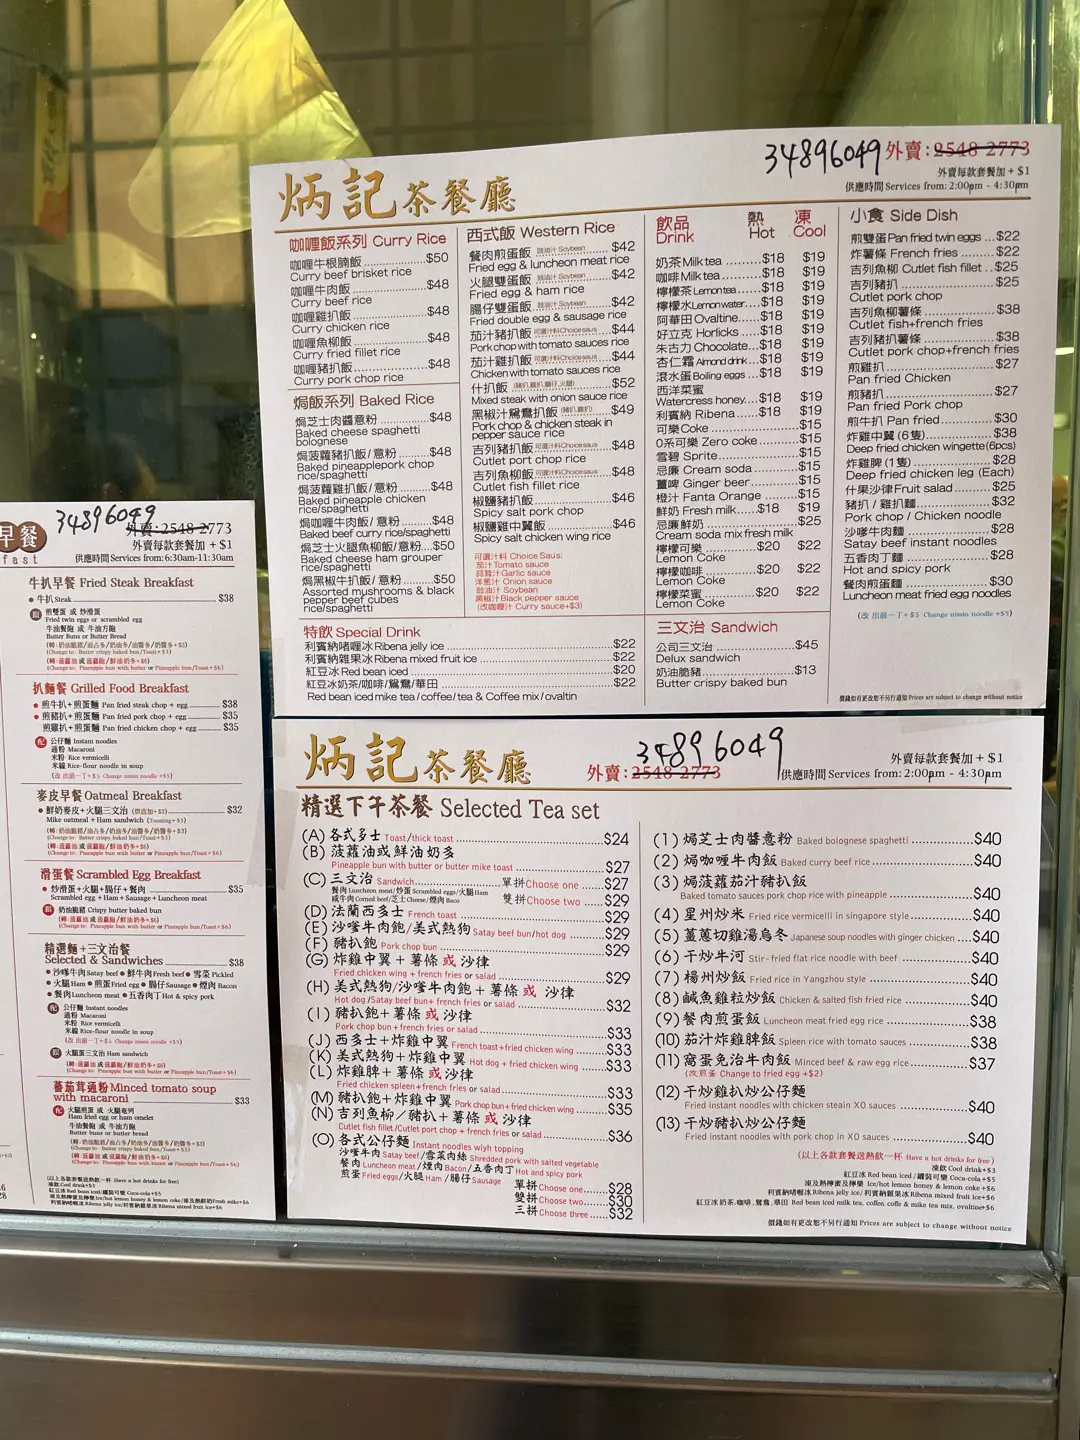 34896049 外賣:2548 2773
外賣每款套餐加 + $1
供應時間 Services from: 2:00pm - 4:30pm
炳記茶餐廳
咖喱飯系列 Curry Rice
咖喱牛根腩飯 $50
Curry beef brisket rice
咖喱牛肉飯 $48
Curry beef rice
咖喱雞扒飯 $48
Curry chicken rice
咖喱魚柳飯 $48
Curry fried fillet rice
咖喱豬扒飯 $48
Curry pork chop rice
焗飯系列 Baked Rice
焗芝士肉醬意粉 $48
Baked cheese spaghetti
bolognese
焗菠蘿豬扒飯/意粉 $48
Baked pineapplepork chop
rice/spaghetti
焗菠蘿雞扒飯/意粉 $48
Baked pineapple chicken
rice/spaghetti
焗咖喱牛肉飯/意粉 $48
Baked beef curry rice/spaghetti
焗芝士火腿魚柳飯/意粉 $50
Baked cheese ham grouper
rice/spaghetti
焗黑椒牛扒飯/意粉 $50
Assorted mushrooms & black
pepper beef cubes
rice/spaghetti
西式飯 Western Rice
餐肉煎蛋飯 豉油汁 Soybean $42
Fried egg & luncheon meat rice
火腿雙蛋飯 豉油汁 Soybean $42
Fried egg & ham rice
腸仔雙蛋飯 豉油汁 Soybean $42
Fried double egg & sausage rice
茄汁豬扒飯 可選汁料Choice saus $44
Pork chop with tomato sauces rice
茄汁雞扒飯 可選汁料Choice saus $44
Chicken with tomato sauces rice
什扒飯 (豬扒,雞扒,腸仔,火腿) $52
Mixed steak with onion sauce rice
黑椒汁鴛鴦扒飯 (豬扒,雞扒) $49
Pork chop & chicken steak in
pepper sauce rice
吉列豬扒飯 可選汁料Choice saus $48
Cutlet port chop rice
吉列魚柳飯 可選汁料Choice saus $48
Cutlet fish fillet rice
椒鹽豬扒飯 $46
Spicy salt pork chop
椒鹽雞中翼飯 $46
Spicy salt chicken wing rice
可選汁料 Choice Saus:
茄汁 Tomato sauce
蒜茸汁 Garlic sauce
洋葱汁 Onion sauce
豉油汁 Soybean
黑椒汁 Black pepper sauce
(改咖喱汁 Curry sauce+$3)
飲品 熱 凍
Drink Hot Cool
奶茶 Milk tea $18 $19
咖啡 Milk tea $18 $19
檸檬茶 Lemon tea $18 $19
檸檬水 Lemon water $18 $19
阿華田 Ovaltine $18 $19
好立克 Horlicks $18 $19
朱古力 Chocolate $18 $19
杏仁霜 Almond drink $18 $19
滾水蛋 Boiling eggs $18 $19
西洋菜蜜
Watercress honey $18 $19
利賓納 Ribena $18 $19
可樂 Coke $15
0系可樂 Zero coke $15
雪碧 Sprite $15
忌廉 Cream soda $15
薑啤 Ginger beer $15
橙汁 Fanta Orange $15
鮮奶 Fresh milk $18 $19
忌廉鮮奶 $25
Cream soda mix fresh milk
檸檬可樂 $20 $22
Lemon Coke
檸檬咖啡 $20 $22
Lemon Coke
檸檬菜蜜 $20 $22
Lemon Coke
小食 Side Dish
煎雙蛋 Pan fried twin eggs $22
炸薯條 French fries $22
吉列魚柳 Cutlet fish fillet $25
吉列豬扒 $25
Cutlet pork chop
吉列魚柳薯條 $38
Cutlet fish+french fries
吉列豬扒薯條 $38
Cutlet pork chop+french fries
煎雞扒 $27
Pan fried Chicken
煎豬扒 $27
Pan fried Pork chop
煎牛扒 Pan fried $30
炸雞中翼 (6隻) $38
Deep fried chicken wingette(6pcs)
炸雞脾 (1隻) $28
Deep fried chicken leg (Each)
什果沙律 Fruit salad $25
豬扒 / 雞扒麵 $32
Pork chop / Chicken noodle
沙嗲牛肉麵 $28
Satay beef instant noodles
五香肉丁麵 $28
Hot and spicy pork
餐肉煎蛋麵 $30
Luncheon meat fried egg noodles
(改 出前一丁+$5 Change nissin noodle +$5)
特飲 Special Drink
利賓納啫喱冰 Ribena jelly ice $22
利賓納雜果冰 Ribena mixed fruit ice $22
紅豆冰 Red bean iced $20
紅豆冰奶茶/咖啡/鴛鴦/華田 $22
Red bean iced mike tea / coffee / tea & Coffee mix / ovaltin
三文治 Sandwich
公司三文治 $45
Delux sandwich
奶油脆豬 $13
Butter crispy baked bun
價錢如有更改恕不另行通知 Prices are subject to change without notice
早餐
fast
34896049
外賣:2548-2773
外賣每款套餐加 + $1
供應時間 Services from: 6:30am-11:30am
牛扒早餐 Fried Steak Breakfast
牛扒 Steak $38
煎雙蛋 或 炒滑蛋
Fried twin eggs or scrambled egg
牛油餐飽 或 牛油方飽
Butter Buns or Butter Bread
(轉: 奶油脆豬/油占多/奶油多/油醬多/奶醬多+$3)
(Change to: Butter crispy baked bun/Toast+$3)
(轉: 菠蘿油 或 菠蘿飽/鮮油奶多+$6)
(Change to: Pineapple bun with butter or Pineapple bun/Toast+$6)
扒麵餐 Grilled Food Breakfast
煎牛扒+煎蛋麵 Pan fried steak chop + egg $38
煎豬扒+煎蛋麵 Pan fried pork chop + egg $35
煎雞扒+煎蛋麵 Pan fried chicken chop + egg $35
配 公仔麵 Instant noodles
通粉 Macaroni
米粉 Rice vermicelli
米線 Rice-flour noodle in soup
(改 出前一丁+$5 Change nissin noodle +$5)
麥皮早餐 Oatmeal Breakfast
鮮奶麥皮+火腿三文治 (烘底加+$3) $32
Mike oatmeal + Ham sandwich (Toasting+$3)
(轉: 奶油脆豬/油占多/奶油多/油醬多/奶醬多+$3)
(Change to: Butter crispy baked bun/Toast+$3)
(轉: 菠蘿油 或 菠蘿飽/鮮油奶多+$6)
(Change to: Pineapple bun with butter or Pineapple bun/Toast+$6)
滑蛋餐 Scrambled Egg Breakfast
炒滑蛋+火腿+腸仔+餐肉 $35
Scrambled egg + Ham + Sausage + Luncheon meat
跟 奶油脆豬 Crispy butter baked bun
(轉: 菠蘿油 或 菠蘿飽/鮮油奶多+$6)
(Change to: Pineapple bun with butter or Pineapple bun/Toast+$6)
精選麵+三文治餐
Selected & Sandwiches $38
沙嗲牛肉 Satay beef 鮮牛肉 Fresh beef 雪菜 Pickled
火腿 Ham 煎蛋 Fried egg 腸仔 Sausage 煙肉 Bacon
餐肉 Luncheon meat 五香肉丁 Hot & spicy pork
配 公仔麵 Instant noodles
通粉 Macaroni
米粉 Rice vermicelli
米線 Rice-flour noodle in soup
(改 出前一丁+$5 Change nissin noodle +$5)
跟 火腿蛋三文治 Ham sandwich
(轉: 菠蘿油 或 菠蘿飽/鮮油奶多+$6)
(Change to: Pineapple bun with butter or Pineapple bun/Toast+$6)
蕃茄茸通粉 Minced tomato soup
with macaroni $33
配 火腿煎蛋 或 火腿奄列
Ham fried egg or ham omelet
牛油餐飽 或 牛油方飽
Butter buns or butter bread
(轉: 奶油脆豬/油占多/奶油多/油醬多/奶醬多+$3)
(Change to: Butter crispy baked bun/Toast+$3)
(轉: 菠蘿油 或 菠蘿飽/鮮油奶多+$6)
(Change to: Pineapple bun with butter or Pineapple bun/Toast+$6)
(以上各款套餐送熱飲一杯 Have a hot drinks for free)
凍飲 Cool drink+$3
紅豆冰 Red bean iced/罐裝可樂 Coca-cola+$5
凍及熱檸蜜及檸樂 Ice/hot lemon honey & lemon coke/凍及熱鮮奶 Fresh milk+$6
利賓納啫喱冰 Ribena jelly ice/利賓納雜果冰 Ribena mixed fruit ice+$6
炳記茶餐廳
34896049
外賣:2548 2773
外賣每款套餐加 + $1
供應時間 Services from: 2:00pm - 4:30pm
精選下午茶餐 Selected Tea set
(A) 各式多士 Toast/thick toast $24
(B) 菠蘿油或鮮油奶多
Pineapple bun with butter or butter mike toast $27
(C) 三文治 Sandwich 單拼Choose one $27
餐肉 Luncheon meat/炒蛋 Scrambled eggs/火腿 Ham
咸牛肉 Corned beef/芝士 Cheese/煙肉 Baco 雙拼Choose two $29
(D) 法蘭西多士 French toast $29
(E) 沙嗲牛肉飽/美式熱狗 Satay beef bun/hot dog $29
(F) 豬扒飽 Pork chop bun $29
(G) 炸雞中翼 + 薯條 或 沙律
Fried chicken wing + french fries or salad $29
(H) 美式熱狗/沙嗲牛肉飽 + 薯條 或 沙律
Hot dog /Satay beef bun+ french fries or salad $32
(I) 豬扒飽+ 薯條 或 沙律
Pork chop bun + french fries or salad $33
(J) 西多士+炸雞中翼 French toast+fried chicken wing $33
(K) 美式熱狗+炸雞中翼 Hot dog + fried chicken wing $33
(L) 炸雞脾+ 薯條 或 沙律
Fried chicken spleen+french fries or salad $33
(M) 豬扒飽+炸雞中翼 Pork chop bun+fried chicken wing $35
(N) 吉列魚柳/豬扒+薯條 或 沙律
Cutlet fish fillet /Cutlet port chop + french fries or salad $36
(O) 各式公仔麵 Instant noodles wiyh topping
沙嗲牛肉 Satay beef /雪菜肉絲 Shredded pork with salted vegetable
餐肉 Luncheon meat / 煙肉 Bacon / 五香肉丁 Hot and spicy pork
煎蛋 Fried eggs / 火腿 Ham / 腸仔 Sausage 單拼 Choose one $28
雙拼 Choose two $30
三拼 Choose three $32
(1) 焗芝士肉醬意粉 Baked bolognese spaghetti $40
(2) 焗咖喱牛肉飯 Baked curry beef rice $40
(3) 焗菠蘿茄汁豬扒飯
Baked tomato sauces pork chop rice with pineapple $40
(4) 星州炒米 Fried rice vermicelli in singapore style $40
(5) 薑蔥切雞湯烏冬 Japanese soup noodles with ginger chicken $40
(6) 干炒牛河 Stir-fried flat rice noodle with beef $40
(7) 楊州炒飯 Fried rice in Yangzhou style $40
(8) 鹹魚雞粒炒飯 Chicken & salted fish fried rice $40
(9) 餐肉煎蛋飯 Luncheon meat fried egg rice $38
(10) 茄汁炸雞脾飯 Spleen rice with tomato sauces $38
(11) 窩蛋免治牛肉飯 Minced beef & raw egg rice $37
(改煎蛋 Change to fried egg +$2)
(12) 干炒雞扒炒公仔麵
Fried instant noodles with chicken steain XO sauces $40
(13) 干炒豬扒炒公仔麵
Fried instant noodles with pork chop in XO sauces $40
(以上各款套餐送熱飲一杯 Have a hot drinks for free )
凍飲 Cool drink+$3
紅豆冰 Red bean iced / 罐裝可樂 Coca-cola+$5
凍及熱檸蜜及檸樂 Ice/hot lemon honey & lemon coke +$6
利賓納啫喱冰 Ribena jelly ice/利賓納雜果冰 Ribena mixed fruit ice+$6
紅豆冰奶茶,咖啡,鴛鴦,華田 Red bean iced milk tea, coffee, coffe & mike tea mix, ovaltine+$6
價錢如有更改恕不另行通知 Prices are subject to change without notice